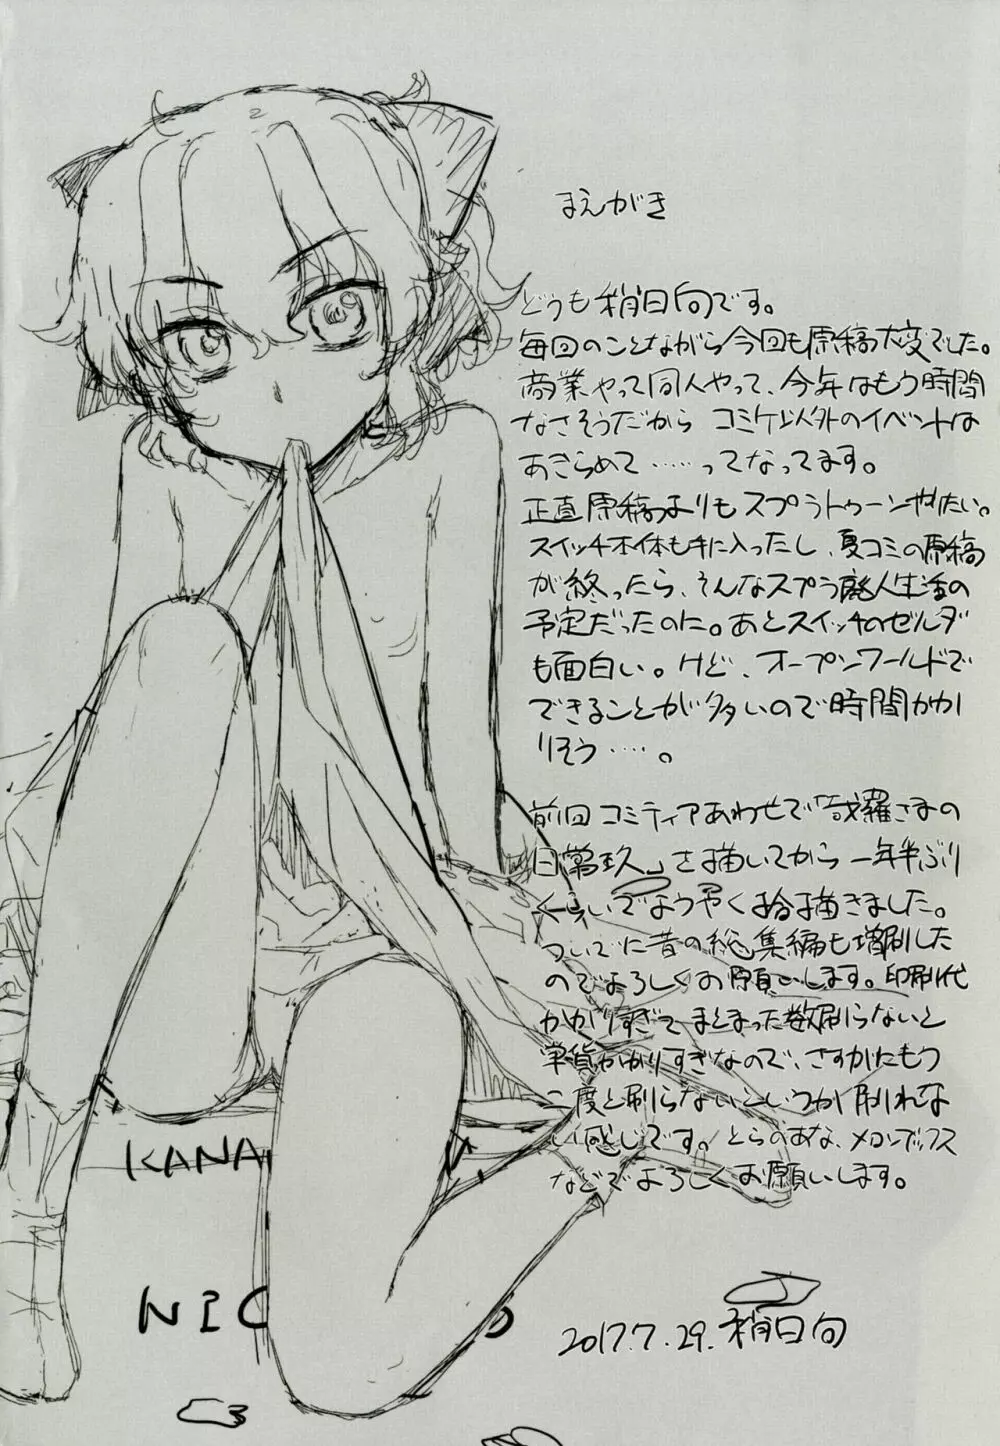 まえがき
どうも 稍日向です。
毎回のことながら今回も原稿大変でした。
商業やって同人やって、今年はもう時間
なさそうだから コミケ以外のイベントは
あきらめて……ってなってます。
正直原稿よりもスプラトゥーンやりたい。
スイッチ本体も手に入ったし、夏コミの原稿
が終ったら、そんなスプラ廃人生活の
予定だったのに。あとスイッチのゼルダ
も面白い。けど、オープンワールドで
できることが多いので時間かか
りそう……。
前回コミティアあわせで「哉羅さまの
日常玖」を描いてから一年半ぶり
くらいでようやく拾描きました。
ついでに昔の総集編も増刷した
のでよろしくお願いします。印刷代
かかりすぎてまとまった数刷らないと
単価かかりすぎなので、さすがにもう
二度と刷らないというか刷れな
い感じです。とらのあな、メロンブックス
などでよろしくお願いします。
2017.7.29. 稍日向
KANA
NIC